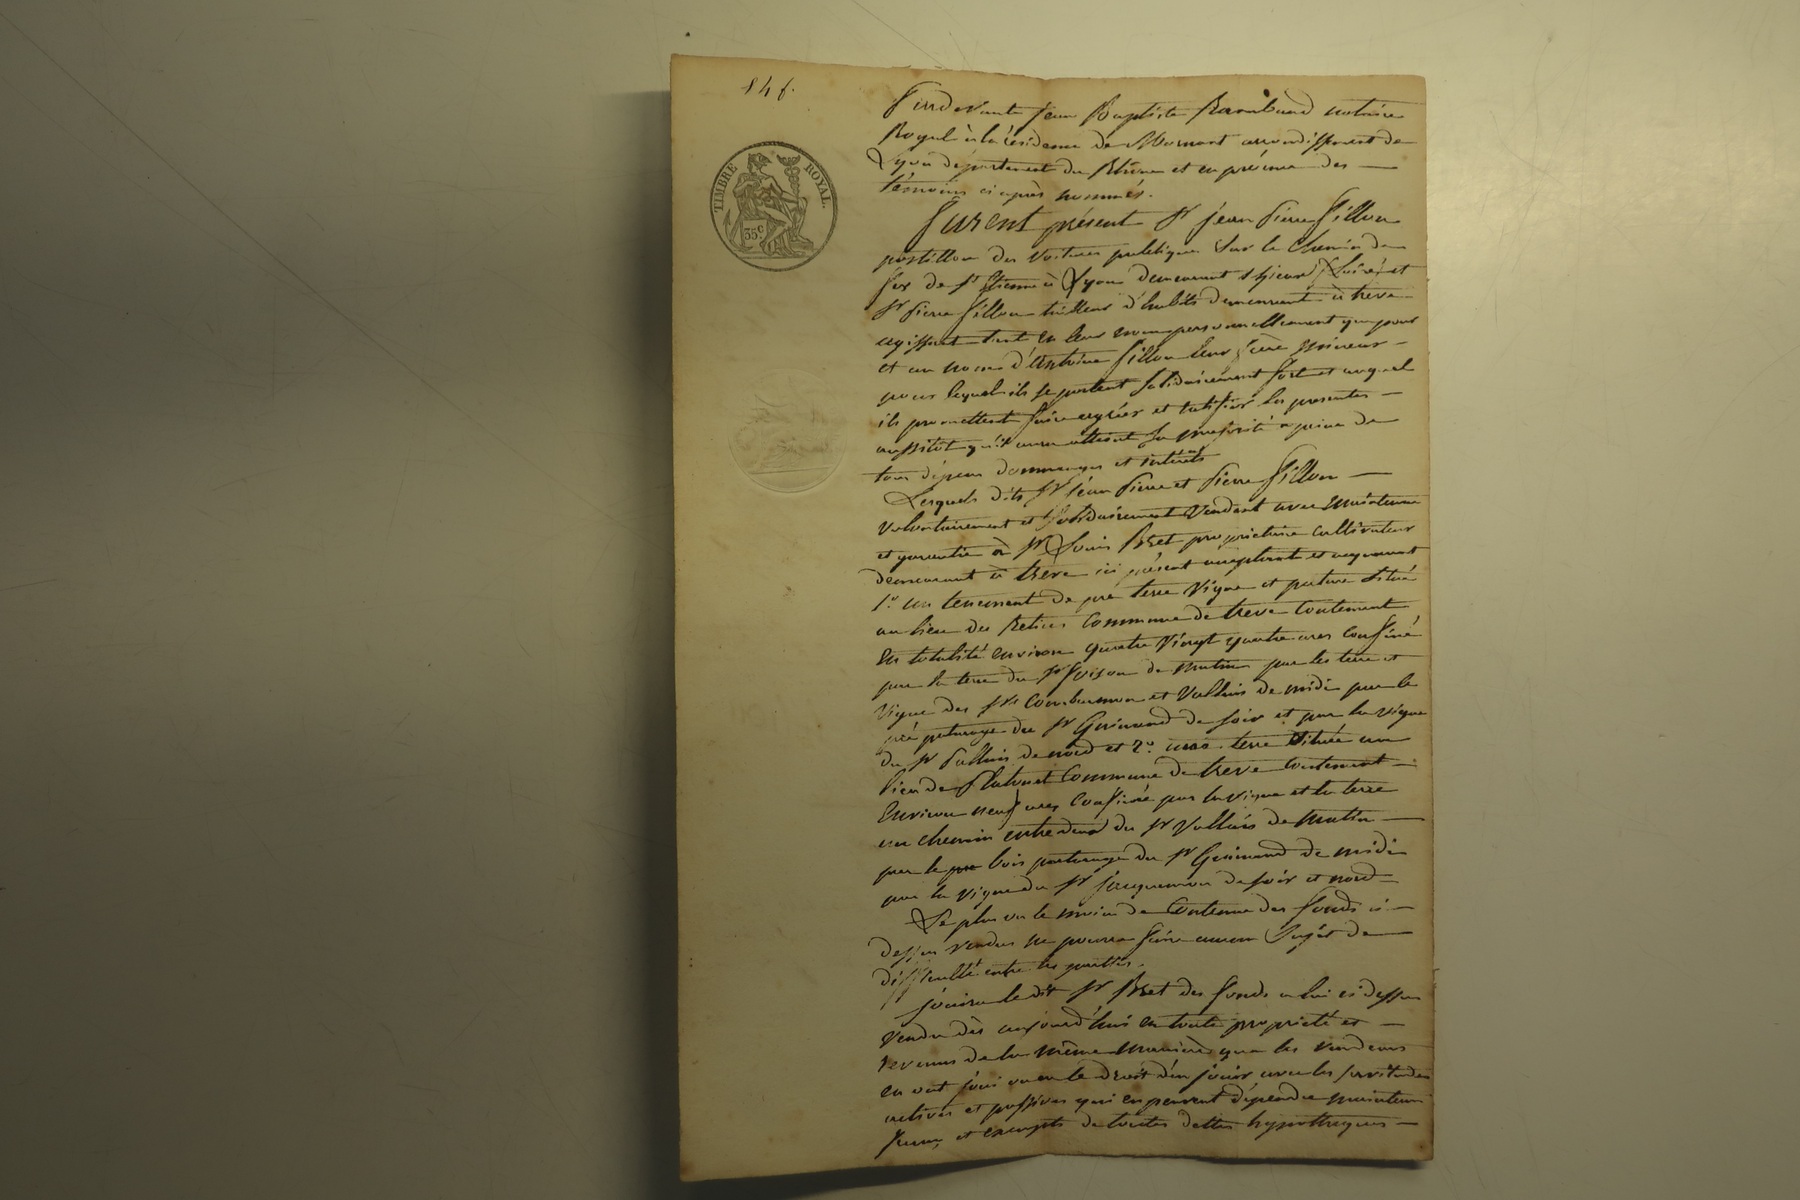 84 f.
TIMBRE ROYAL.
35 c.
Pardevant Jean Baptiste Raimbaud notaire
Royal à la résidence de Mornant arrondissement de
Lyon département du Rhône et en présence des
témoins ci après nommés.
Furent présent Sr Jean Pierre Fillon
postillon des voitures publiques sur le chemin de
fer de St Etienne à Lyon demeurant (Loire) et
Sr Pierre Fillon tailleur d'habits demeurant à treve
agissant tant en leur nom personnellement que pour
et au nom d'Antoine Fillon leur frère mineur
pour lequel ils se portent solidairement fort et auquel
ils promettent faire agréer et ratifier les presentes
aussitôt qu'il aura atteint sa majorité a peine de
tous dépens dommages et intérêts
Lesquels dits Sr Jean Pierre et Pierre Fillon
volontairement et solidairement vendent avec maintenue
et garantie à Sr Louis Bret propriétaire cultivateur
demeurant à treve ici présent acceptant et acquérant
1° un tenement de pré terre vigne et pature situé
au lieu des commune de treve contenant
en totalité environ quatre vingt quatre ares confiné
par la terre du Sr de matin par les terre et
vigne des Srs et Vallais de midi par le
pré paturage du Sr Guinand de soir et par la vigne
du Sr de nord et 2° une terre située au
lieu de commune de treve contenant
environ neuf ares confiné par la vigne et la terre
un chemin entredeux du Sr Vallais de matin
par le pré bois paturage du Sr Guinand de midi
par la vigne du Sr de soir et nord
Le plus ou le moins de contenue des fonds ci
dessus vendus ne pourra faire aucun sujet de
difficulté entre les parties.
Jouira le dit Sr Bret des fonds a lui ci dessus
vendu dès aujourd'hui en toute propriété et
revenus de la même manière que les vendeurs
en ont joui ou eu le droit d'en jouir avec les servitudes
actives et passives qui en peuvent dépendre maintenu
francs et exempts de toutes dettes hypothèques